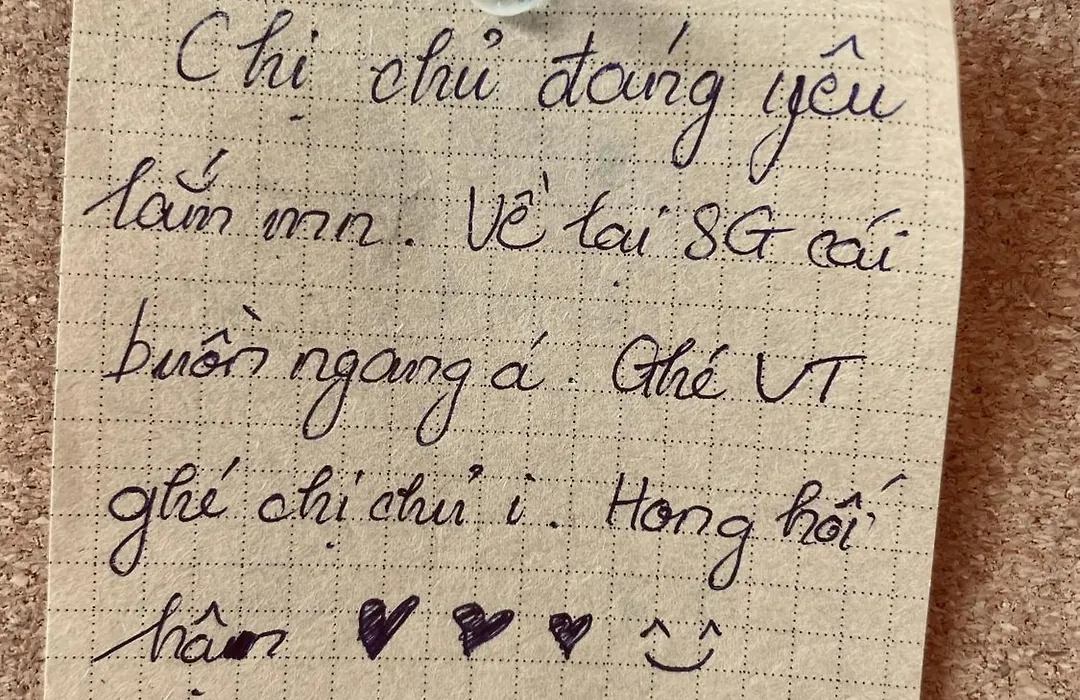 Chị chủ đáng yêu
lắm mn. Về lại SG cái
buồn ngang á. Ghé VT
ghé chị chủ i. Hong hối
hận ♥ ♥ ♥ ^‿^